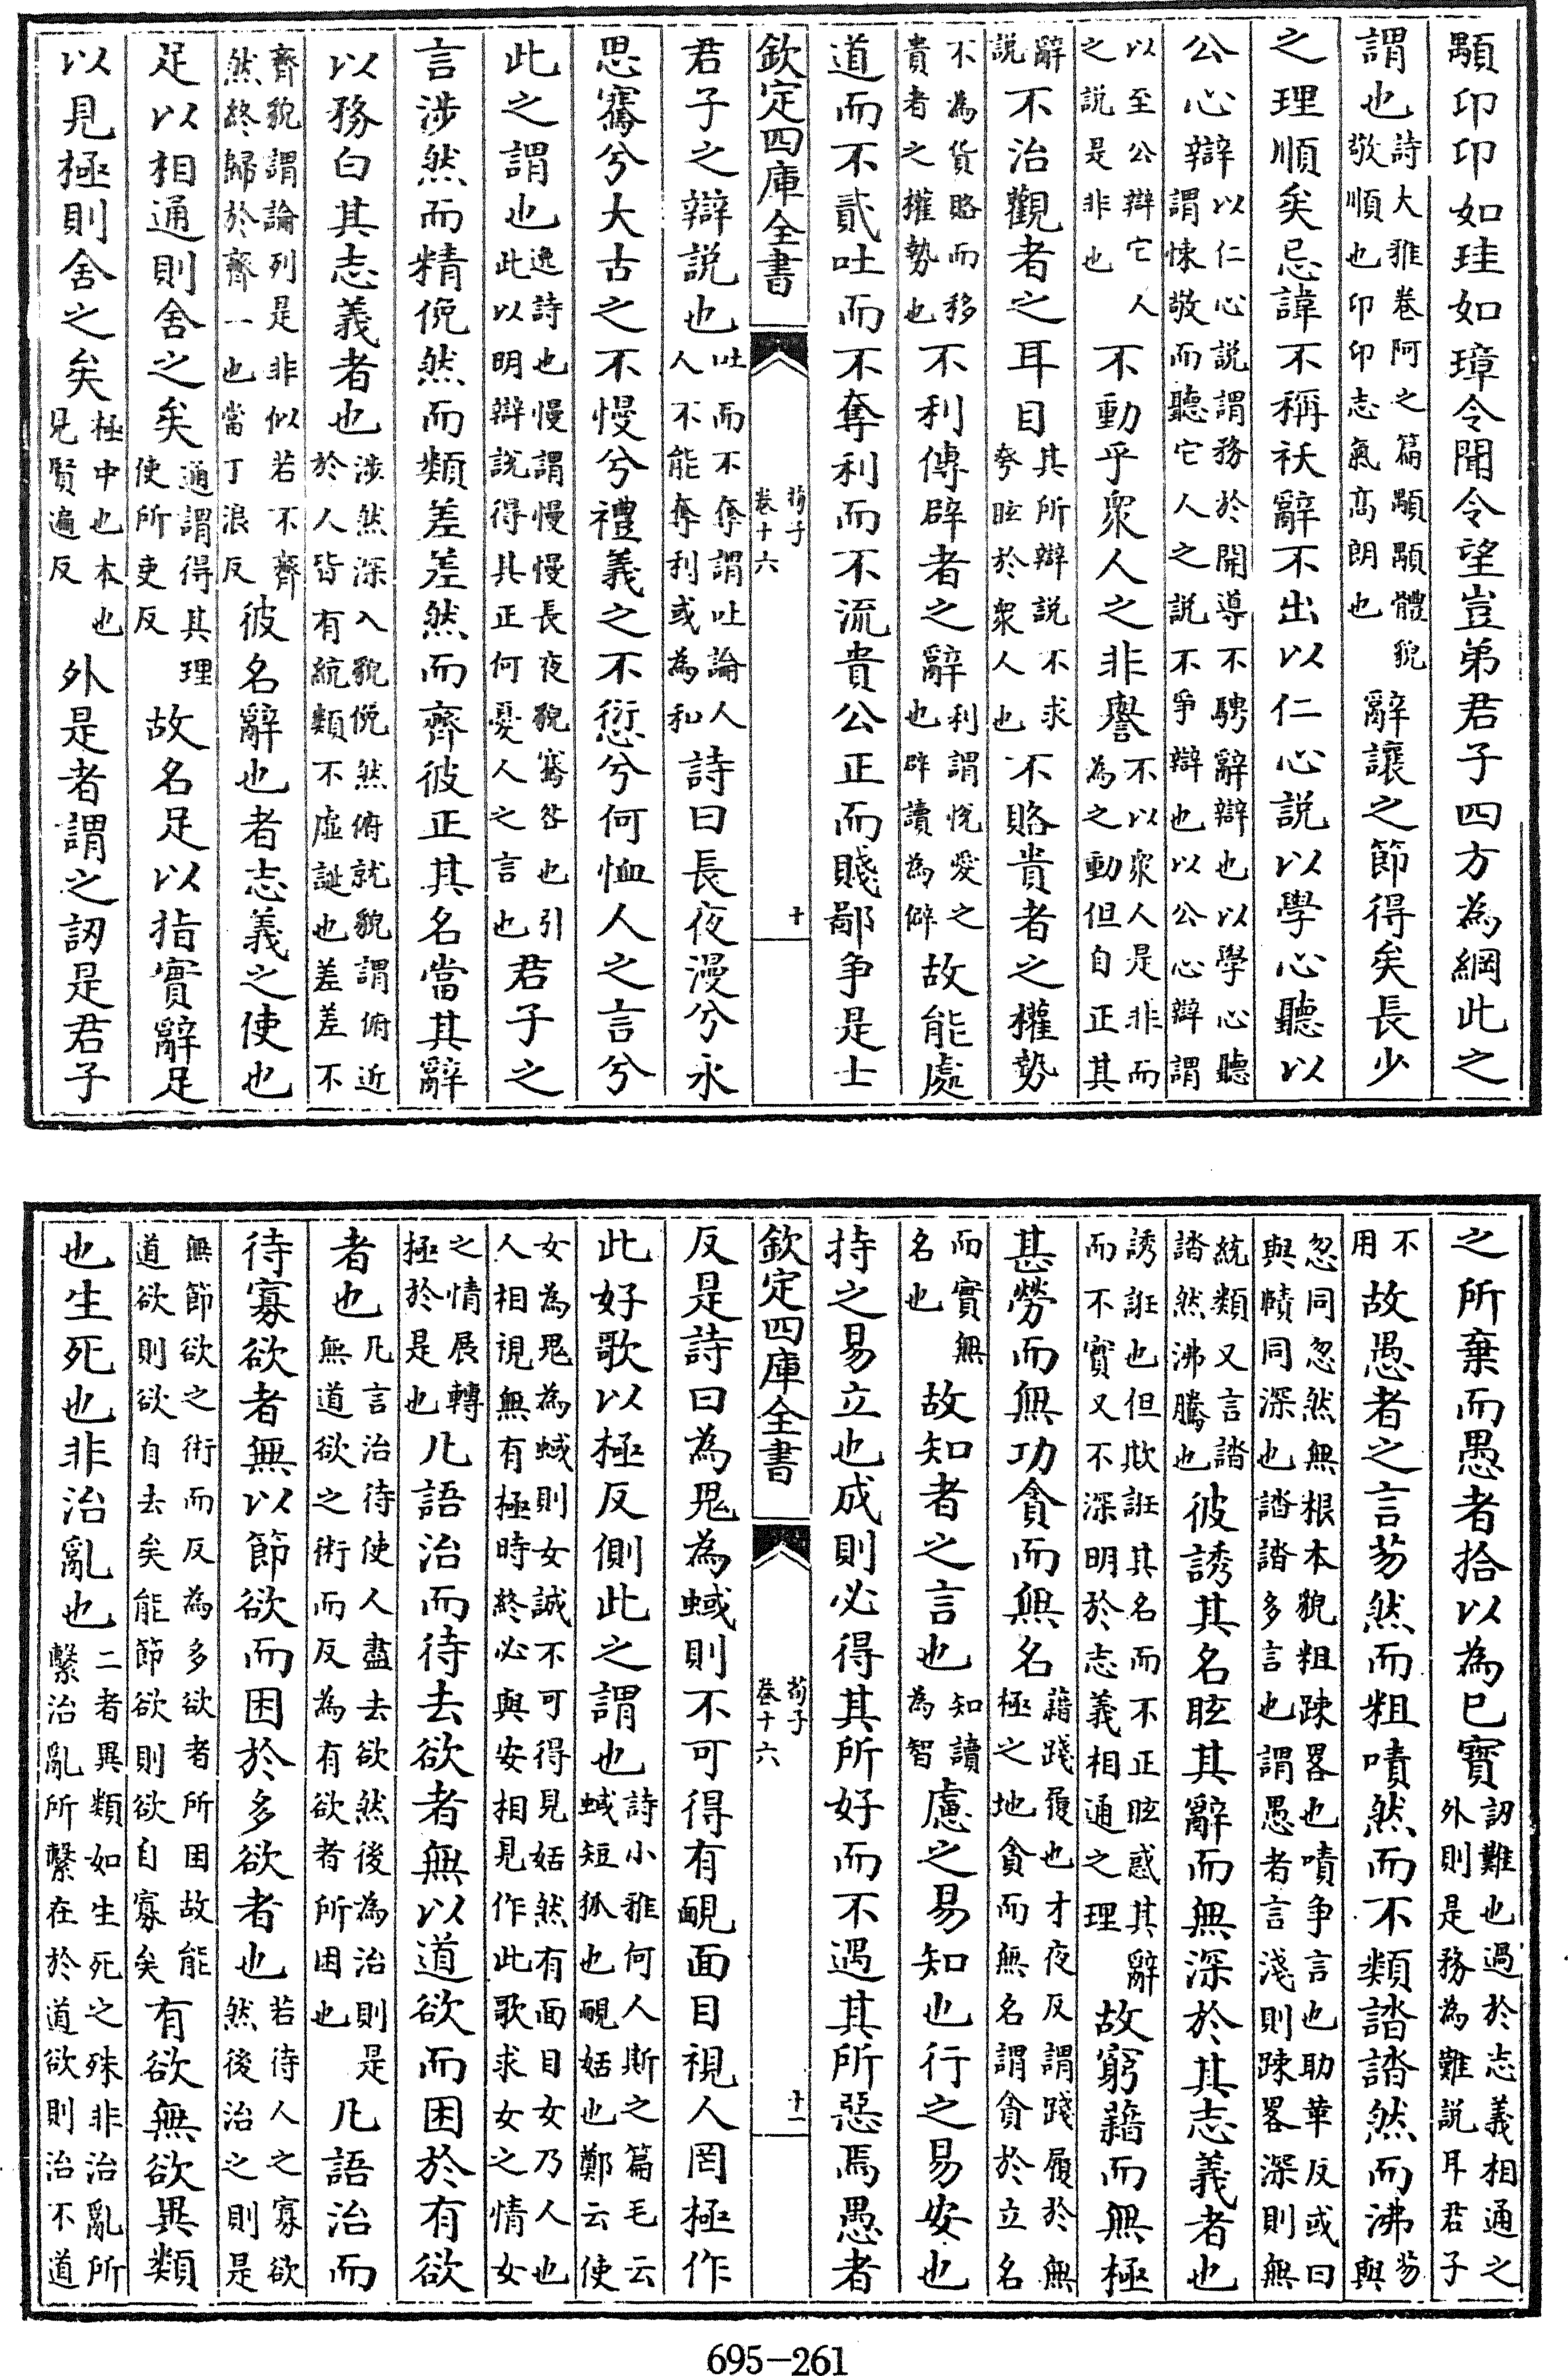 顒卬卬如珪如璋令聞令望豈弟君子四方為綱此之
謂也詩大雅卷阿之篇顒顒體貌敬順也卬卬志氣髙朗也辭讓之節得矣長少
之理順矣忌諱不稱祅辭不出以仁心説以學心聽以
公心辯以仁心説謂務於開導不騁辭辯也以學心聽謂悚敬而聽它人之説不爭辯也以公心辯謂
以至公辯它人之説是非也不動乎衆人之非譽不以衆人是非而為之動但自正其
辭説不治觀者之耳目其所辯説不求夸眩於衆人也不賂貴者之權勢
不為貨賂而移貴者之權勢也不利傳辟者之辭利謂悅愛之也辟讀為僻故能處
道而不貳吐而不奪利而不流貴公正而賤鄙爭是士
欽定四庫全書 荀子卷十六 十
君子之辯説也吐而不奪謂吐論人人不能奪利或為和詩曰長夜漫兮永
思騫兮大古之不慢兮禮義之不愆兮何恤人之言兮
此之謂也逸詩也慢謂慢慢長夜貌騫咎也引此以明辯説得其正何憂人之言也君子之
言涉然而精俛然而類差差然而齊彼正其名當其辭
以務白其志義者也涉然深入貌俛然俯就貌謂俯近於人皆有統類不虛誕也差差不
齊貌謂論列是非似若不齊然終歸於齊一也當丁浪反彼名辭也者志義之使也
足以相通則舍之矣通謂得其理使所吏反故名足以指實辭足
以見極則舍之矣極中也本也見賢遍反外是者謂之訒是君子
之所棄而愚者拾以為已寶訒難也過於志義相通之外則是務為難說耳君子
不用故愚者之言芴然而粗嘖然而不類誻誻然而沸芴與
忽同忽然無根本貌粗踈畧也嘖爭言也助華反或曰與賾同深也誻誻多言也謂愚者言淺則踈畧深則無
統類又言誻誻然沸騰也彼誘其名眩其辭而無深於其志義者也
誘誑也但欺誑其名而不正眩惑其辭而不實又不深明於志義相通之理故窮藉而無極
甚勞而無功貪而無名藉踐履也才夜反謂踐履於無極之地貪而無名謂貪於立名
而實無名也故知者之言也知讀為智慮之易知也行之易安也
持之易立也成則必得其所好而不遇其所惡焉愚者
欽定四庫全書 荀子卷十六 十一
反是詩曰為鬼為蜮則不可得有靦面目視人罔極作
此好歌以極反側此之謂也詩小雅何人斯之篇毛云蜮短狐也靦姡也鄭云使
女為鬼為蜮則女誠不可得見姡然有面目女乃人也人相視無有極時終必與安相見作此歌求女之情女
之情展轉極於是也凡語治而待去欲者無以道欲而困於有欲
者也凡言治待使人盡去欲然後為治則是無道欲之術而反為有欲者所困也凡語治而
待寡欲者無以節欲而困於多欲者也若待人之寡欲然後治之則是
無節欲之術而反為多欲者所困故能道欲則欲自去矣能節欲則欲自寡矣有欲無欲異類
也生死也非治亂也二者異類如生死之殊非治亂所繫治亂所繫在於道欲則治不道
695-261